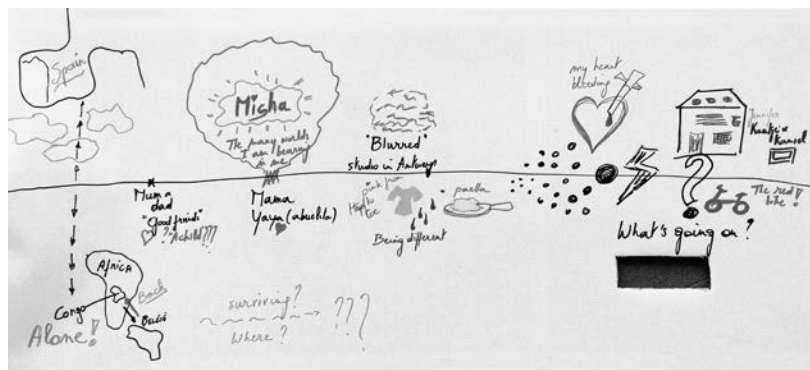 Spain
Micha
The many worlds
I am bearing
in me
"Blurred"
studio in Antwerp
my heart
bleeding
Jennifer
Kaatje &
Kamiel
Mum &
dad
"Good friends"
? "A child???
Mama
Yaya (abuelita)
pink from
Head to
toe
Being different
paella
What's going on?
The red
bike!
Africa
Congo
Back
België
Alone!
surviving?
where?
???